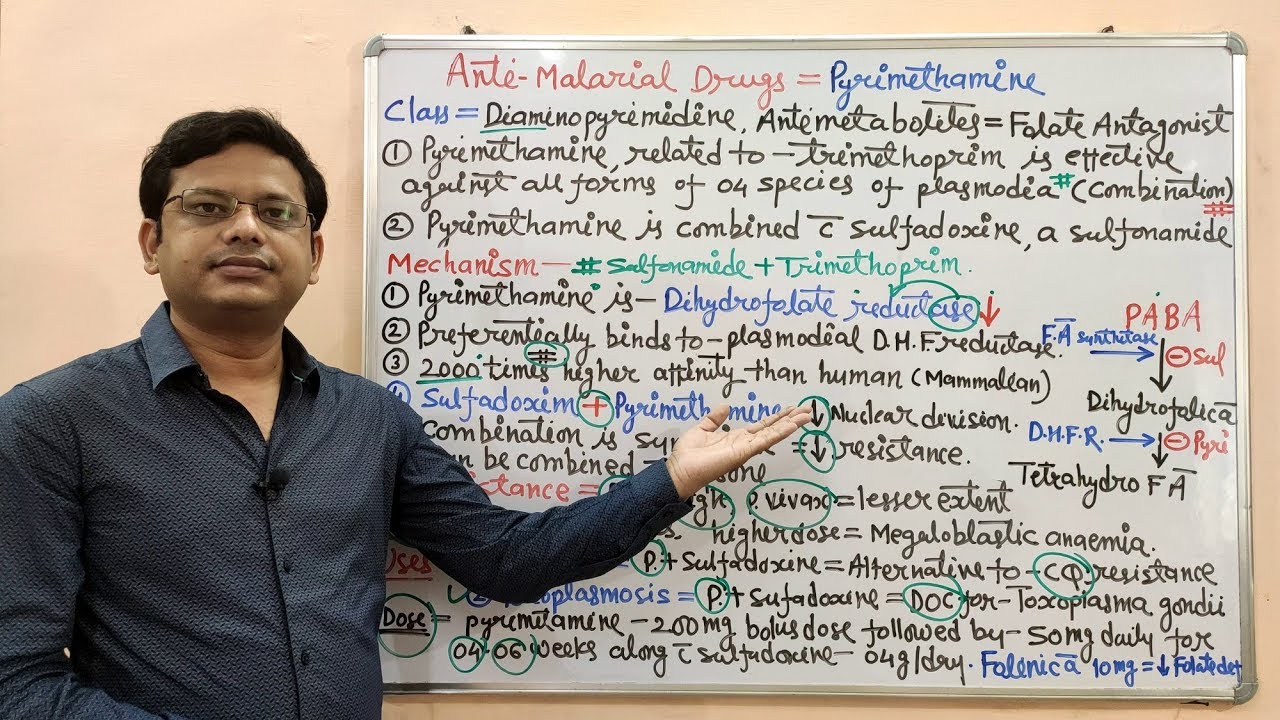 Anti-Malarial Drugs = Pyrimethamine
Class = Diaminopyrimidine, Antimetabolites = Folate Antagonist
① Pyrimethamine, related to - trimethoprim is effective
against all forms of 04 species of plasmodia # (Combination)
#
② Pyrimethamine is combined c̅ sulfadoxine, a sulfonamide
Mechanism - # Sulfonamide + Trimethoprim.
① Pyrimethamine is - Dihydrofolate reductase ↓
② Preferentially binds to - plasmodial D.H.F reductase.
#
③ 2000 times higher affinity than human (Mammalian)
④ Sulfadoxim + Pyrimethamine ↓ Nuclear division.
Combination is = ↓ resistance.
be combined
= P. vivax = lesser extent
higher dose = Megaloblastic anaemia.
Uses P. + Sulfadoxine = Alternative to - CQ resistance
= P. + Sufadoxine = DOC for - Toxoplasma gondii
Dose = pyrimitamine - 200mg bolus dose followed by - 50mg daily for
04 - 06 weeks along c̅ sulfadoxine - 04g/dry. Folenic A̅ 10mg = ↓ Folate def
PABA
F.A̅ synthitase → ⊖ Sul
Dihydrofolic A̅
D.H.F.R. → ⊖ Pyri
Tetrahydro F A̅